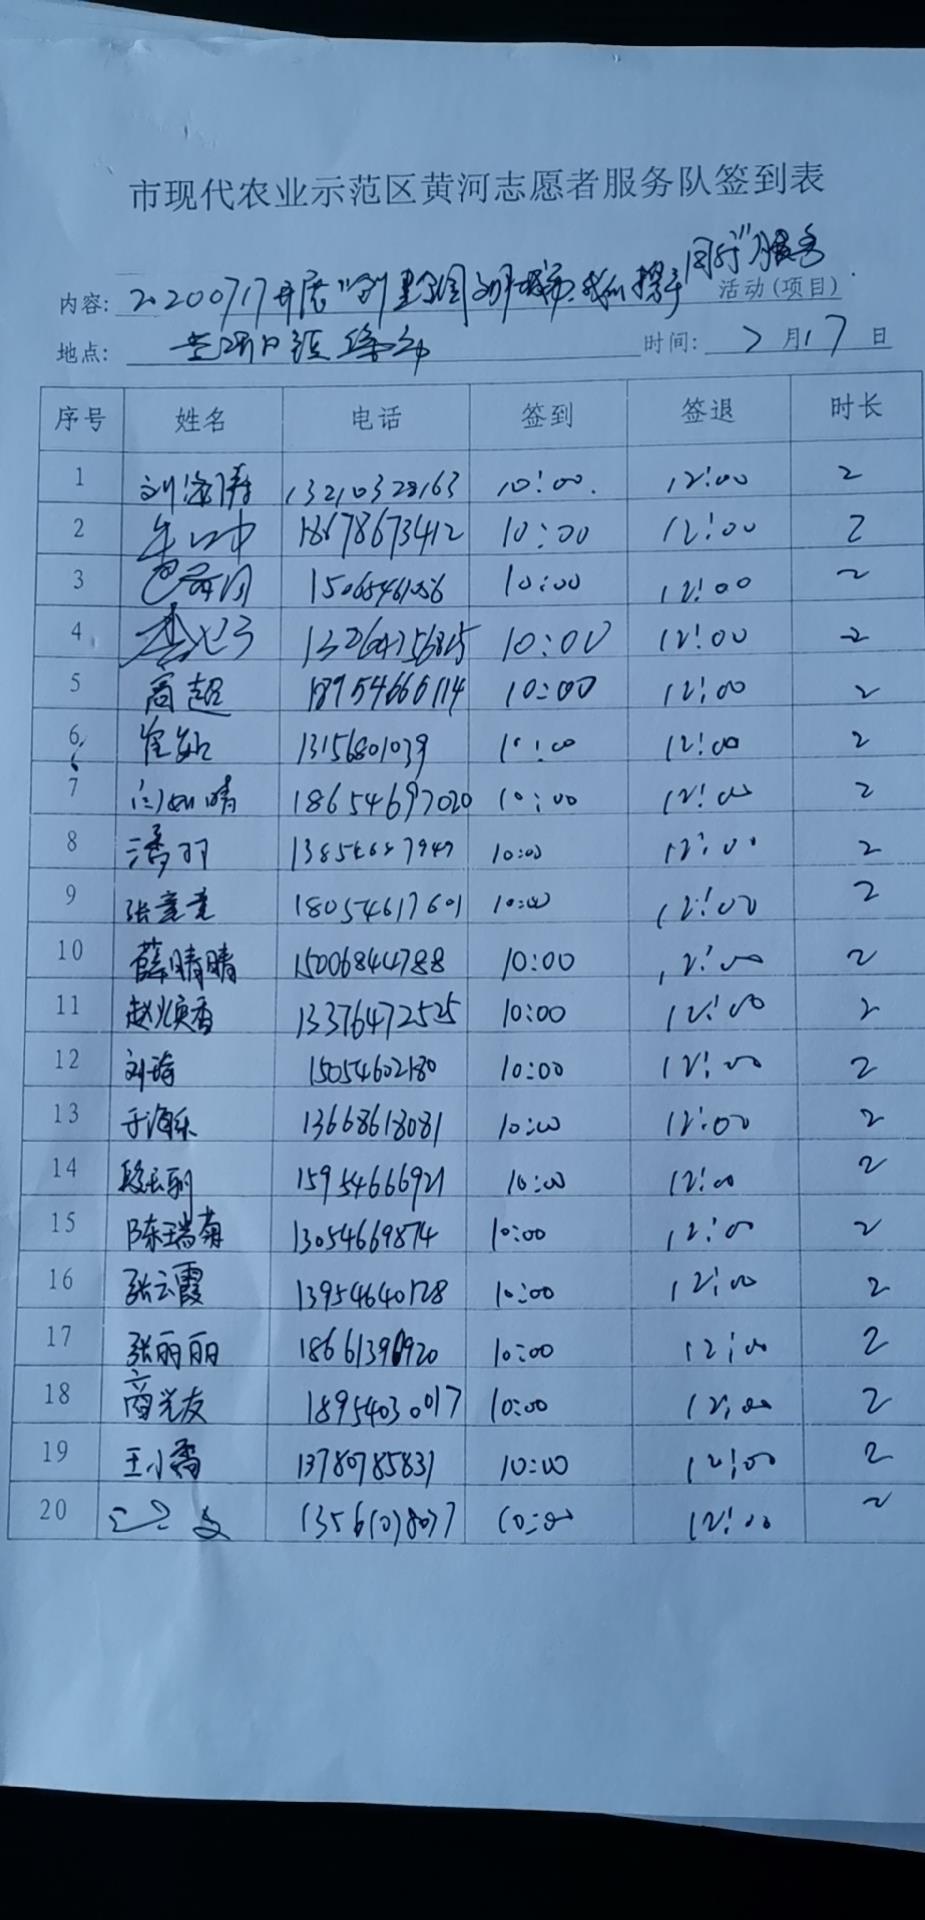 市现代农业示范区黄河志愿者服务队签到表
同行"服务
内容: 20200717开展"创全国文明城市、我们携手 活动(项目)
地点: 时间: 7月17日
序号 姓名 电话 签到 签退 时长
1 刘海涛 13210328163 10:00. 12:00 2
2 18678673412 10:00 12:00 2
3 15065461056 10:00 12:00 2
4 10:00 12:00 2
5 商超 18954666114 10:00 12:00 2
6 崔姣 13156801039 10:00 12:00 2
7 闫如晴 18654697020 10:00 12:00 2
8 潘羽 10:00 12:00 2
9 张意意 18054617601 10:00 12:00 2
10 薛晴晴 15006844788 10:00 12:00 2
11 赵焕香 13376472525 10:00 12:00 2
12 刘琦 15054602180 10:00 12:00 2
13 于海乐 13668618081 10:00 12:00 2
14 段玉利 15954666921 10:00 12:00 2
15 陈瑞菊 13054669874 10:00 12:00 2
16 张云霞 13954640128 10:00 12:00 2
17 张丽丽 10:00 12:00 2
18 商光友 18954030017 10:00 12:00 2
19 王小霞 13780785831 10:00 12:00 2
20 10:00 12:00 2